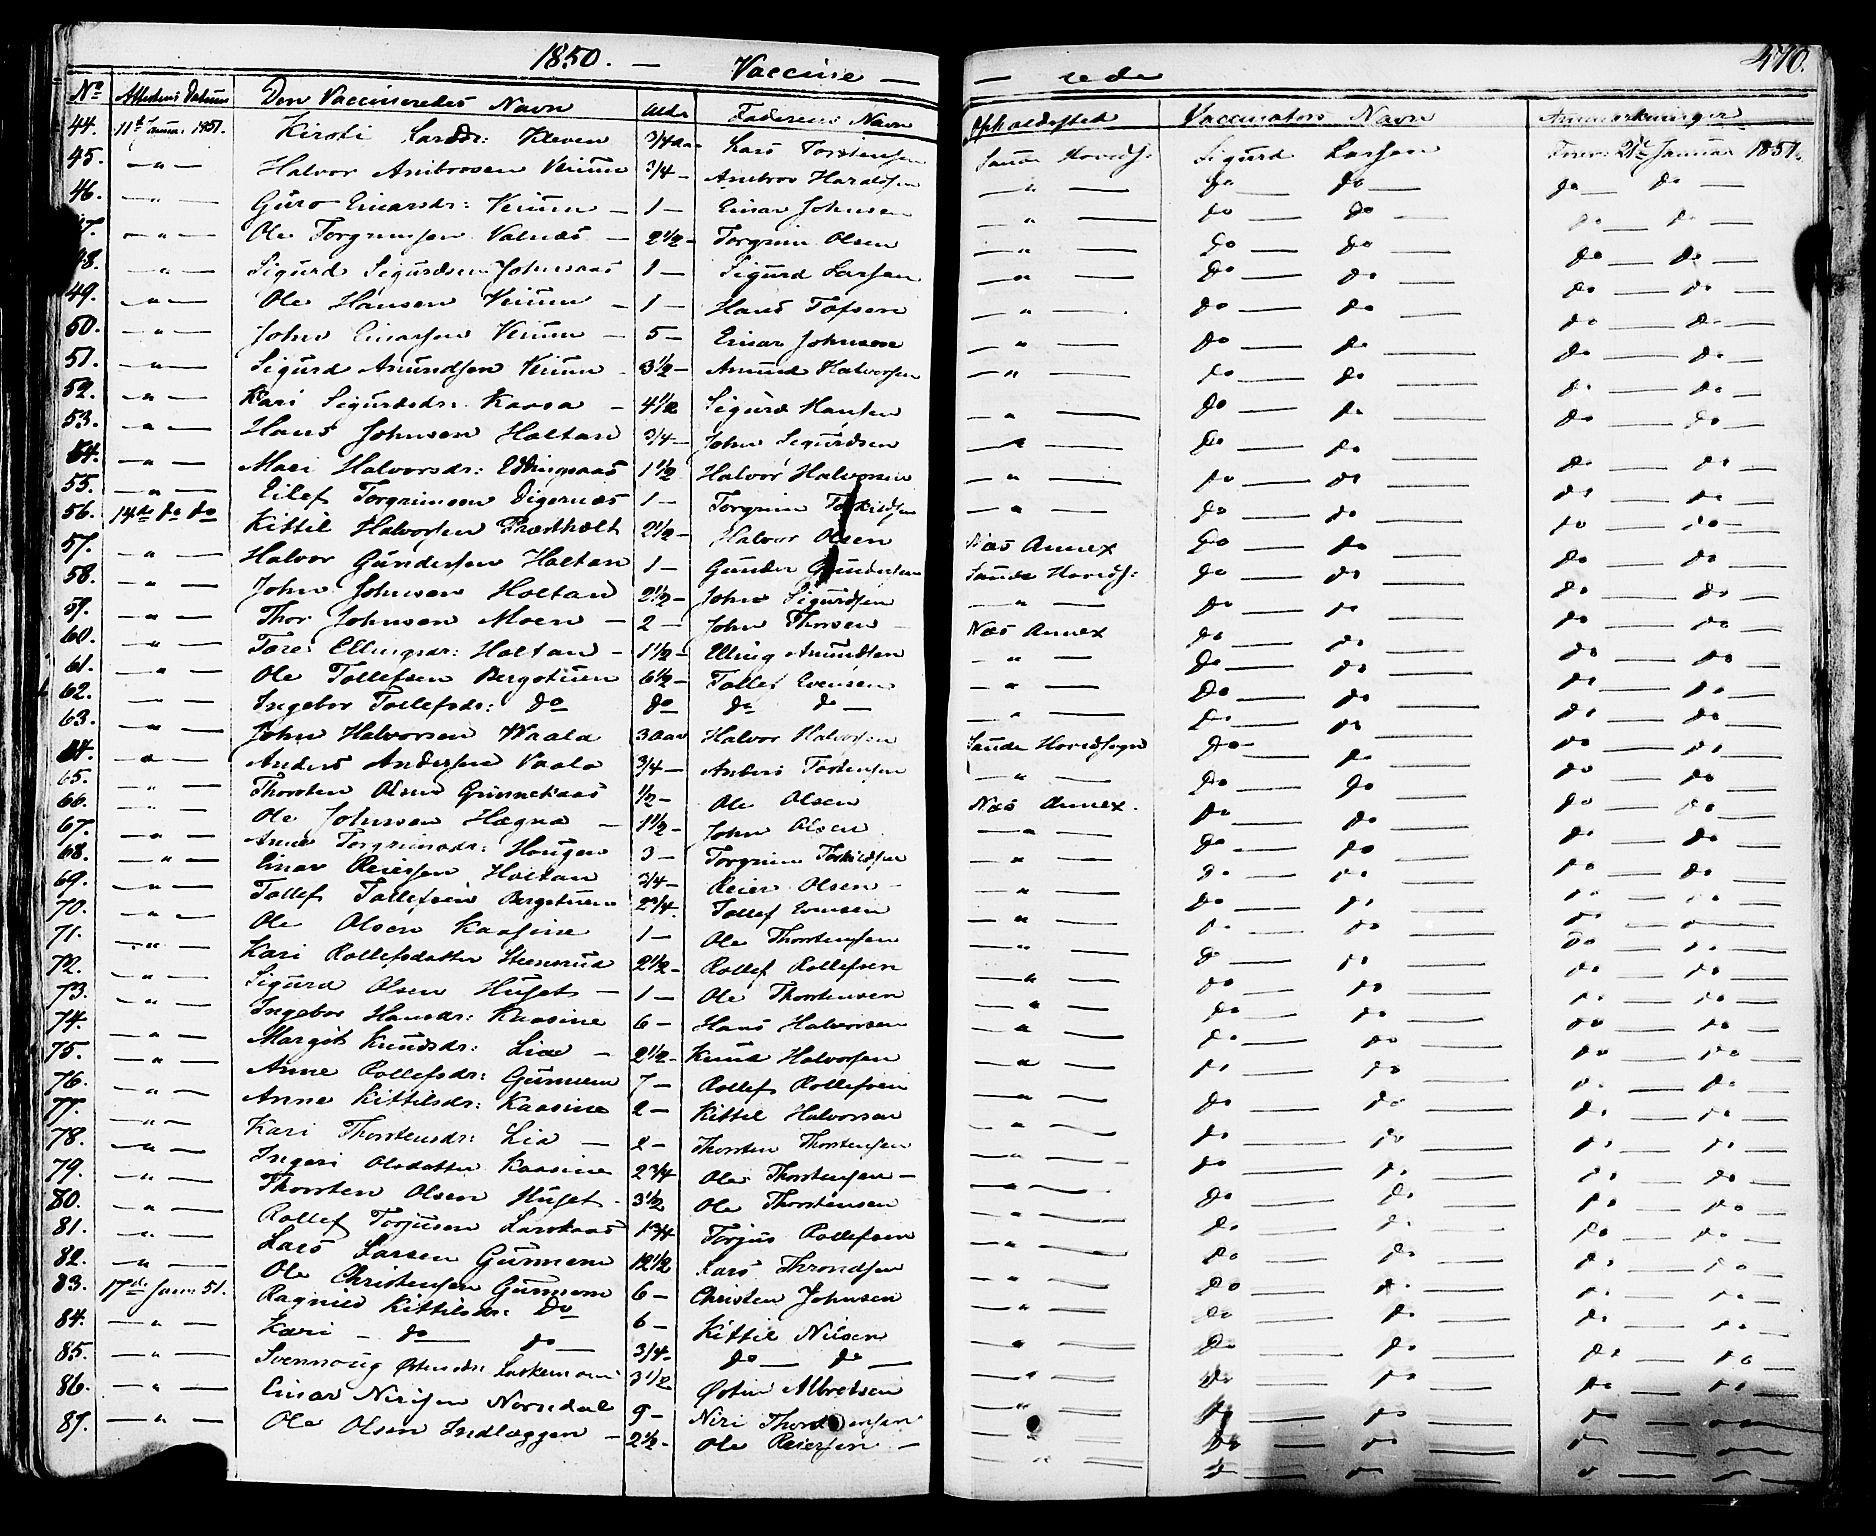 1850. — Vaccine — — rede 470.
No Attestens Datum Den Vaccineredes Navn Alder Faderens Navn Opholdssted Vaccinators Navn Anmærkninger
44. 11te Januar 1851. Kirsti Larsdr: Kleven 3/4 aar Lars Torstensen Saude Hoveds: Sigurd Larsen 21de Januar 1851.
45. — " — Halvor Ambrosen Verium 3/4 — Ambros Haraldsen — " — do — do — do — do —
46. — " — Guro Einarsdr: Verium — 1 — Einar Johnsen — " — do — do — do — do —
47. — " — Ole Torgrimsen Valnæs — 2 1/2 — Torgrim Olsen — " — do — do — do — do —
48. — " — Sigurd Sigurdsen Johnsaas 1 — Sigurd Larsen — " — do — do — do — do —
49. — " — Ole Hansen Verium — 1 — Hans Tofsen — " — do — do — do — do —
50. — " — John Einarsen Verium — 5 — Einar Johnsen — " — do — do — do — do —
51. — " — Sigurd Amundsen Verium 3 1/2 — Amund Halvorsen — " — do — do — do — do —
52. — " — Kari Sigurdsdr: Kaasa — 4 1/2 Sigurd Hansen — " — do — do — do — do —
53. — " — Hans Johnsen Holtan 3/4 — John Sigurdsen — " — do — do — do — do —
54. — " — Mari Halvorsdr: 1 1/2 Halvor Halvorsen — " — do — do — do — do —
55. — " — Eilef Torgrimsen Digernæs 1 — Torgrim Torkildsen — " — do — do — do — do —
56. 14de do do Kittil Halvorsen 2 1/2 — Halvor Olsen Næs Annex do — do — do — do —
57. — " — Halvor Gundersen Holtan 1 — Gunder Gundersen Saude Hoveds: do — do — do — do —
58. — " — John Johnsen Holtan 2 1/2 — John Sigurdsen — " — do — do — do — do —
59. — " — Thor Johnsen Moen — 2 — John Thorsen Næs Annex do — do — do — do —
60. — " — Tore Ellingsdr: Holtan — 1 1/2 — Elling Amundsen — " — do — do — do — do —
61. — " — Ole Tollefsen Bergstuen 6 1/2 — Tollef Evensen — " — do — do — do — do —
62. — " — Ingebor Tollefsdr: do do do do — — " — do — do — do — do —
63. — " — John Halvorsen Waala 3 aar Halvor Halvorsen Saude Hovedsogn do — do — do — do —
64. — " — Anders Andersen Vaala 3/4 — Anders Torstensen — " — do — do — do — do —
65. — " — Thorsten Olsen Grinnekaas 1/2 — Ole Olsen Næs Annex. do — do — do — do —
66. — " — Ole Johnsen Hægna — 1 1/2 — John Olsen — " — do — do — do — do —
67. — " — Anne Torgrimsdr: Haugen 3 — Torgrim Torkildsen — " — do — do — do — do —
68. — " — Einar Reiersen Holtan 3/4 — Reier Olsen — — " — do — do — do — do —
69. — " — Tollef Tollefsen Bergstuen 2 3/4 Tollef Evensen — " — do — do — do — do —
70. — " — Ole Olsen Kaasine 1 — Ole Thorstensen — " — do — do — do — do —
71. — " — Kari Rollefsdatter Steensrud 2 1/2 — Rollef Rollefsen — " — do — do — do — do —
72. — " — Sigurd Olsen Huset — 1 — Ole Thorstensen — " — do — do — do — do —
73. — " — Ingebor Hansdr: Kaasine 6 — Hans Halvorsen — " — do — do — do — do —
74. — " — Margit Knudsdr: Lia — 2 1/2 — Knud Halvorsen — " — do — do — do — do —
75. — " — Anne Rollefsdr: Gunnem 7 — Rollef Rollefsen — " — do — do — do — do —
76. — " — Anne Kittilsdr: Kaasine 2 — Kittil Halvorsen — " — do — do — do — do —
77. — " — Kari Thorstensdr: Lia — 2 — Thorsten Thorstensen — " — do — do — do — do —
78. — " — Ingeri Olsdatter Kaasine 2 3/4 Ole Thorstensen — — " — do — do — do — do —
79. — " — Thorsten Olsen Huset. 3 1/2 Ole Thorstensen — " — do — do — do — do —
80. — " — Rollef Torjusen 1 3/4 Torjus Rollefsen — " — do — do — do — do —
81. — " — Lars Larsen Gunnem 12 1/2 Lars Throndsen — " — do — do — do — do —
82. — " — Ole Christensen Gunnem 6 — Christen Johnsen — " — do — do — do — do —
83. 17de Janu 51. Ragnild Kittilsdr: do 6 — Kittil Nilsen — " — do — do — do — do —
84. — " — Kari — do — do — 3/4 — do — do — — " — do — do — do — do —
85. — " — Svennoug Østensdr: 3 1/2 Østen Albretsen — " — do — do — do — do —
86. — " — Einar Nirisen Norsdal 9 — Niri — " — do — do — do — do —
87. — " — Ole Olsen Indlæggen — 2 1/2 — Ole Reiersen — — " — do — do — do — do —